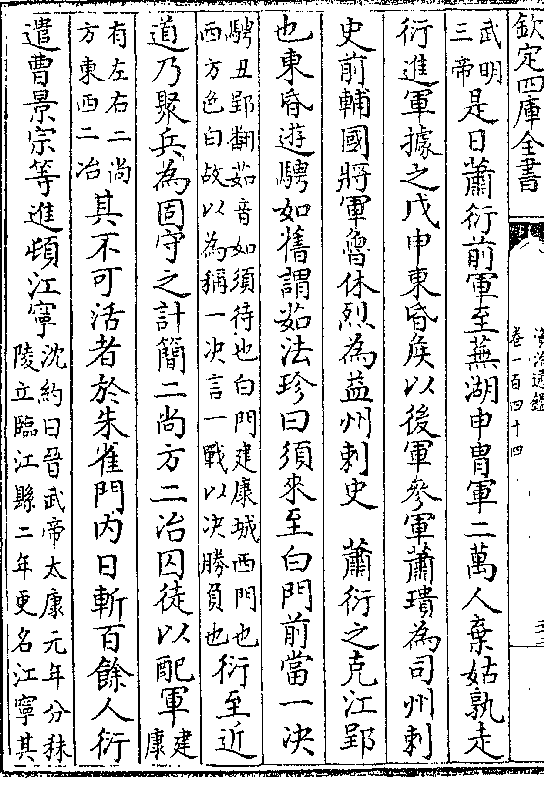 欽定四庫全書
資治通鑑
卷一百四十四
武明
三帝是日蕭衍前軍至蕪湖申胄軍二萬人棄姑孰走
衍進軍據之戊申東昏侯以後軍參軍蕭璝為司州刺
史前輔國將軍魯休烈為益州刺史 蕭衍之克江郢
也東昏遊騁如舊謂茹法珍曰須來至白門前當一決
騁丑郢翻茹音如須待也白門建康城西門也
西方色白故以為稱一決言一戰以決勝負也衍至近
道乃聚兵為固守之計簡二尚方二冶囚徒以配軍建康
有左右二尚
方東西二冶其不可活者於朱雀門内日斬百餘人衍
遣曹景宗等進頓江寧沈約曰晉武帝太康元年分秣
陵立臨江縣二年更名江寧其